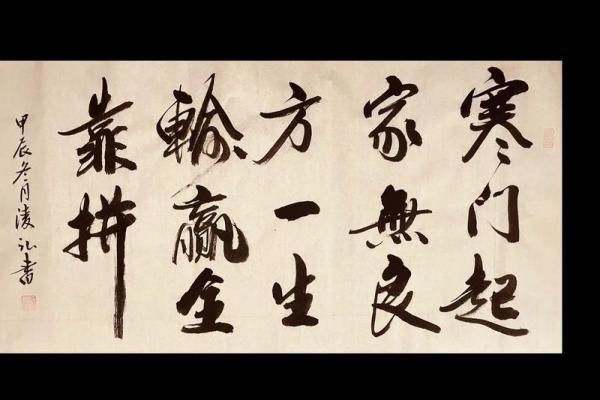 寒门起
家無良
方一生
输赢全
靠拼
甲辰冬月凌弘書